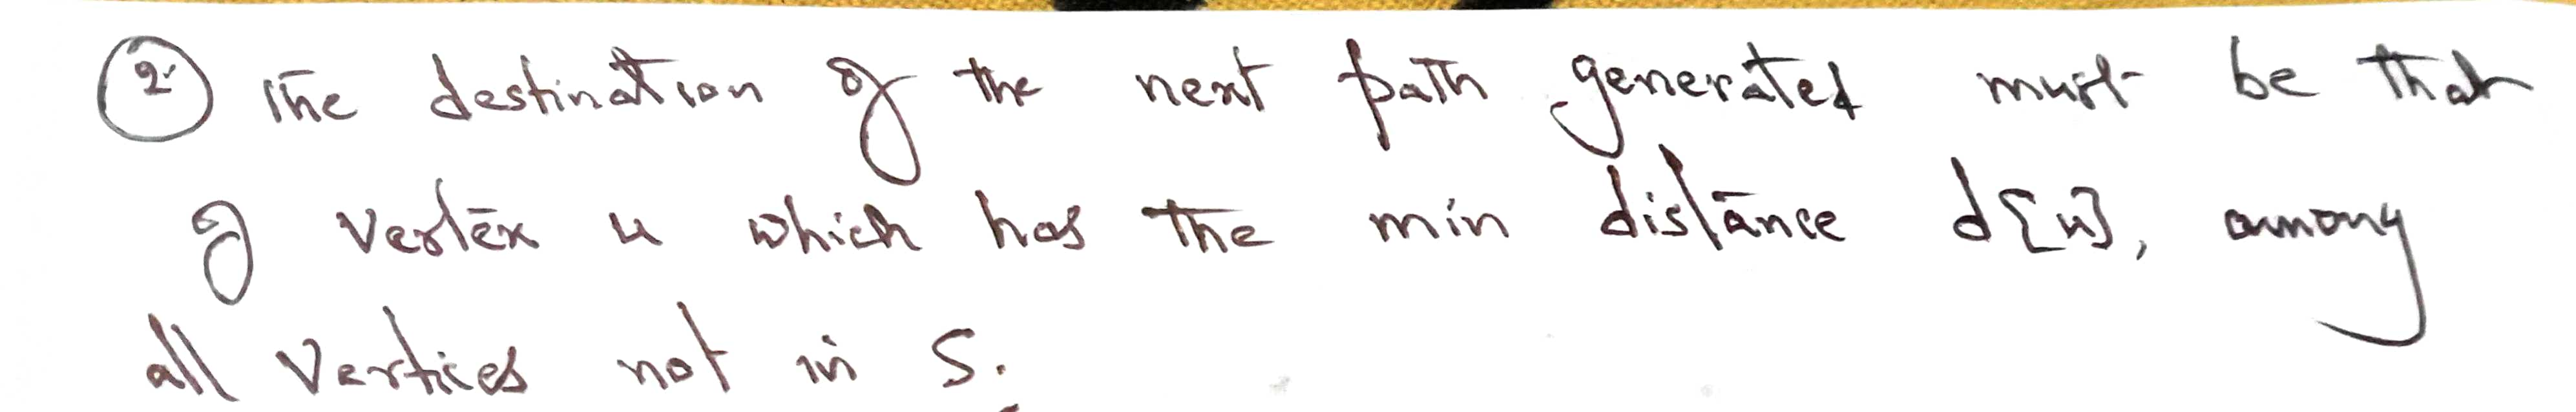 ② The destination of the next path generated must be that
of vertex u which has the min distance d[u], among
all vertices not in S.